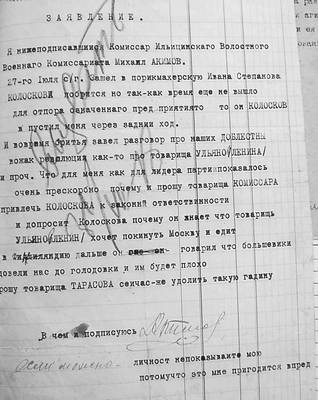 ЗАЯВЛЕНИЕ.
Я нижеподписавшися Комиссар Ильицинского Волостного
Военнаго Комиссариата Михаил АКИМОВ.
27-го Июля с/г. Зашел в порикмахерскую Ивана Степанова
КОЛОСКОВА добрится но так-как время еще не вышло
для отпора означеннаго пред приятято то он КОЛОСКОВ
в пустил меня через задних ход.
И вовремя бритья завел разговор про наших ДОБЛЕСТНЫ
вожак революция как-то про товарища УЛЬЯНО/ЛЕНИНА/
и проч. Что для меня как для лидера партии показалось
очень прескоробно почему и прошу товарища КОМИССАРА
привлечь КОЛОСКОВА к законй ответственности
и допросит Колоскова почему он знает что товарищь
УЛЬЯНО/ЛЕНИН/ хочет покинуть Москву и едит
в дальше он говарил что большевики
довели нас до голодовки и им будет плохо
прошу товарища ТАРАСОВА сейчас-не удолить такую гадину
В чем и подписуюсь Акимов
если можна- личност непоказывайте мою
потомучто это мне пригодится впред